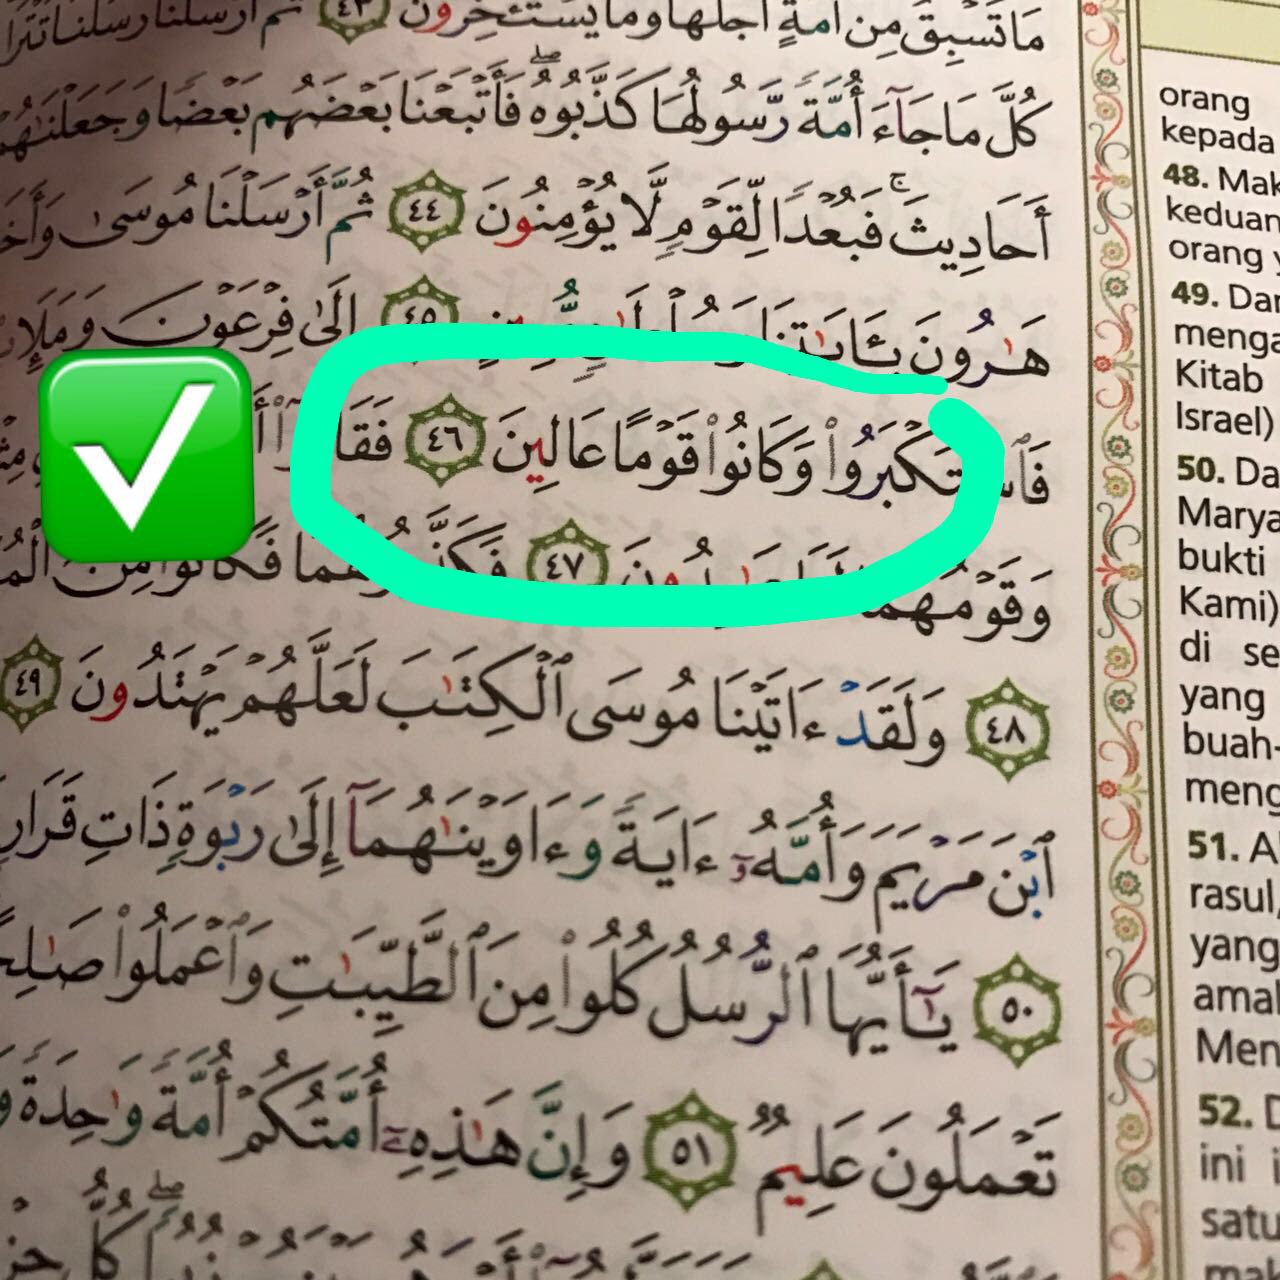 مَا تَسْبِقُ مِنْ أُمَّةٍ أَجَلَهَا وَمَا يَسْتَـْٔخِرُونَ ٤٣ ثُمَّ أَرْسَلْنَا رُسُلَنَا تَتْرَا
كُلَّ مَا جَآءَ أُمَّةً رَّسُولُهَا كَذَّبُوهُ ۖ فَأَتْبَعْنَا بَعْضَهُم بَعْضًا وَجَعَلْنَٰهُمْ
أَحَادِيثَ ۚ فَبُعْدًا لِّقَوْمٍ لَّا يُؤْمِنُونَ ٤٤ ثُمَّ أَرْسَلْنَا مُوسَىٰ وَأَخَ
هَٰرُونَ بِـَٔايَٰتِنَا ٤٥ إِلَىٰ فِرْعَوْنَ وَمَلَإِ
ٱسْتَكْبَرُوا۟ وَكَانُوا۟ قَوْمًا عَالِينَ ٤٦
وَقَوْمُهُمَا ٤٧
٤٨ وَلَقَدْ ءَاتَيْنَا مُوسَى ٱلْكِتَٰبَ لَعَلَّهُمْ يَهْتَدُونَ ٤٩
ٱبْنَ مَرْيَمَ وَأُمَّهُۥٓ ءَايَةً وَءَاوَيْنَٰهُمَآ إِلَىٰ رَبْوَةٍ ذَاتِ قَرَارٍ
٥٠ يَٰٓأَيُّهَا ٱلرُّسُلُ كُلُوا۟ مِنَ ٱلطَّيِّبَٰتِ وَٱعْمَلُوا۟ صَٰلِحً
تَعْمَلُونَ عَلِيمٌ ٥١ وَإِنَّ هَٰذِهِۦٓ أُمَّتُكُمْ أُمَّةً وَٰحِدَةً
orang
kepada
48. Mak
keduan
orang y
49. Dan
menga
Kitab
Israel)
50. Da
Marya
bukti
Kami)
di se
yang
buah-
meng
51. A
rasul,
yang
amal
Men
52. D
ini i
satu